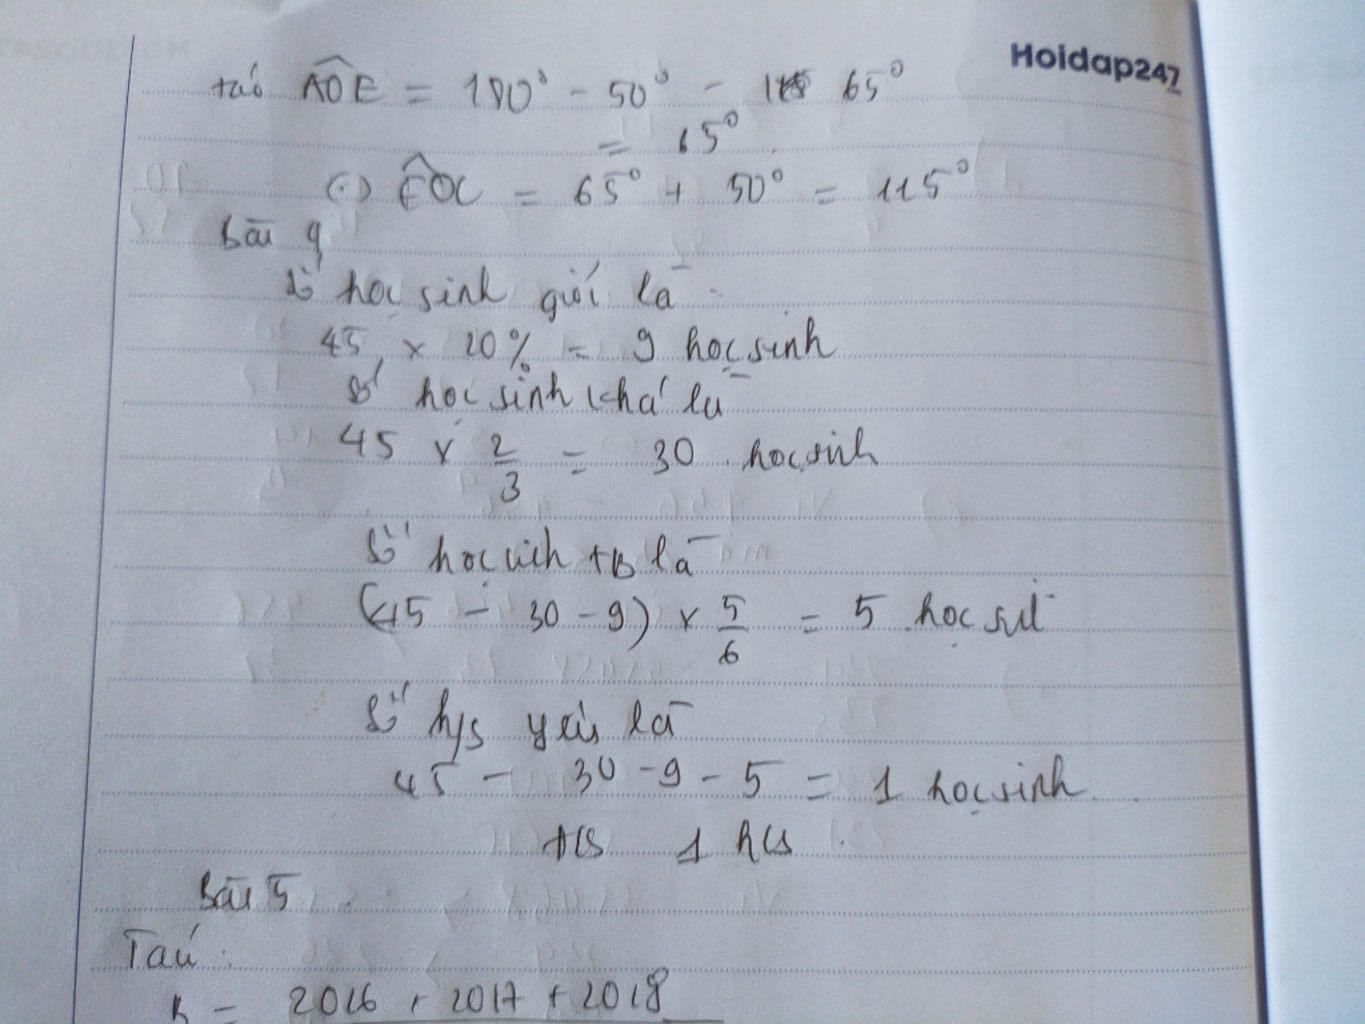 Hoidap247
ta có AÔE = 180° - 50° - 65°
= 65°
(=) EÔC = 65° + 50° = 115°
Bài 4
Số học sinh giỏi là
45 × 20% = 9 học sinh
Số học sinh khá là
45 × 2/3 = 30 học sinh
Số học sinh TB là
(45 - 30 - 9) × 5/6 = 5 học sinh
Số h/s yếu là
45 - 30 - 9 - 5 = 1 học sinh
1 hs
Bài 5
Ta có:
B = 2016 + 2017 + 2018